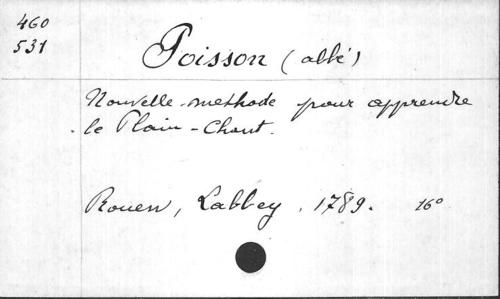 460
531
Poisson (abbé)
Nouvelle méthode pour apprendre
le Plain-Chant.
Rouen, Labbey. 1789. 16°